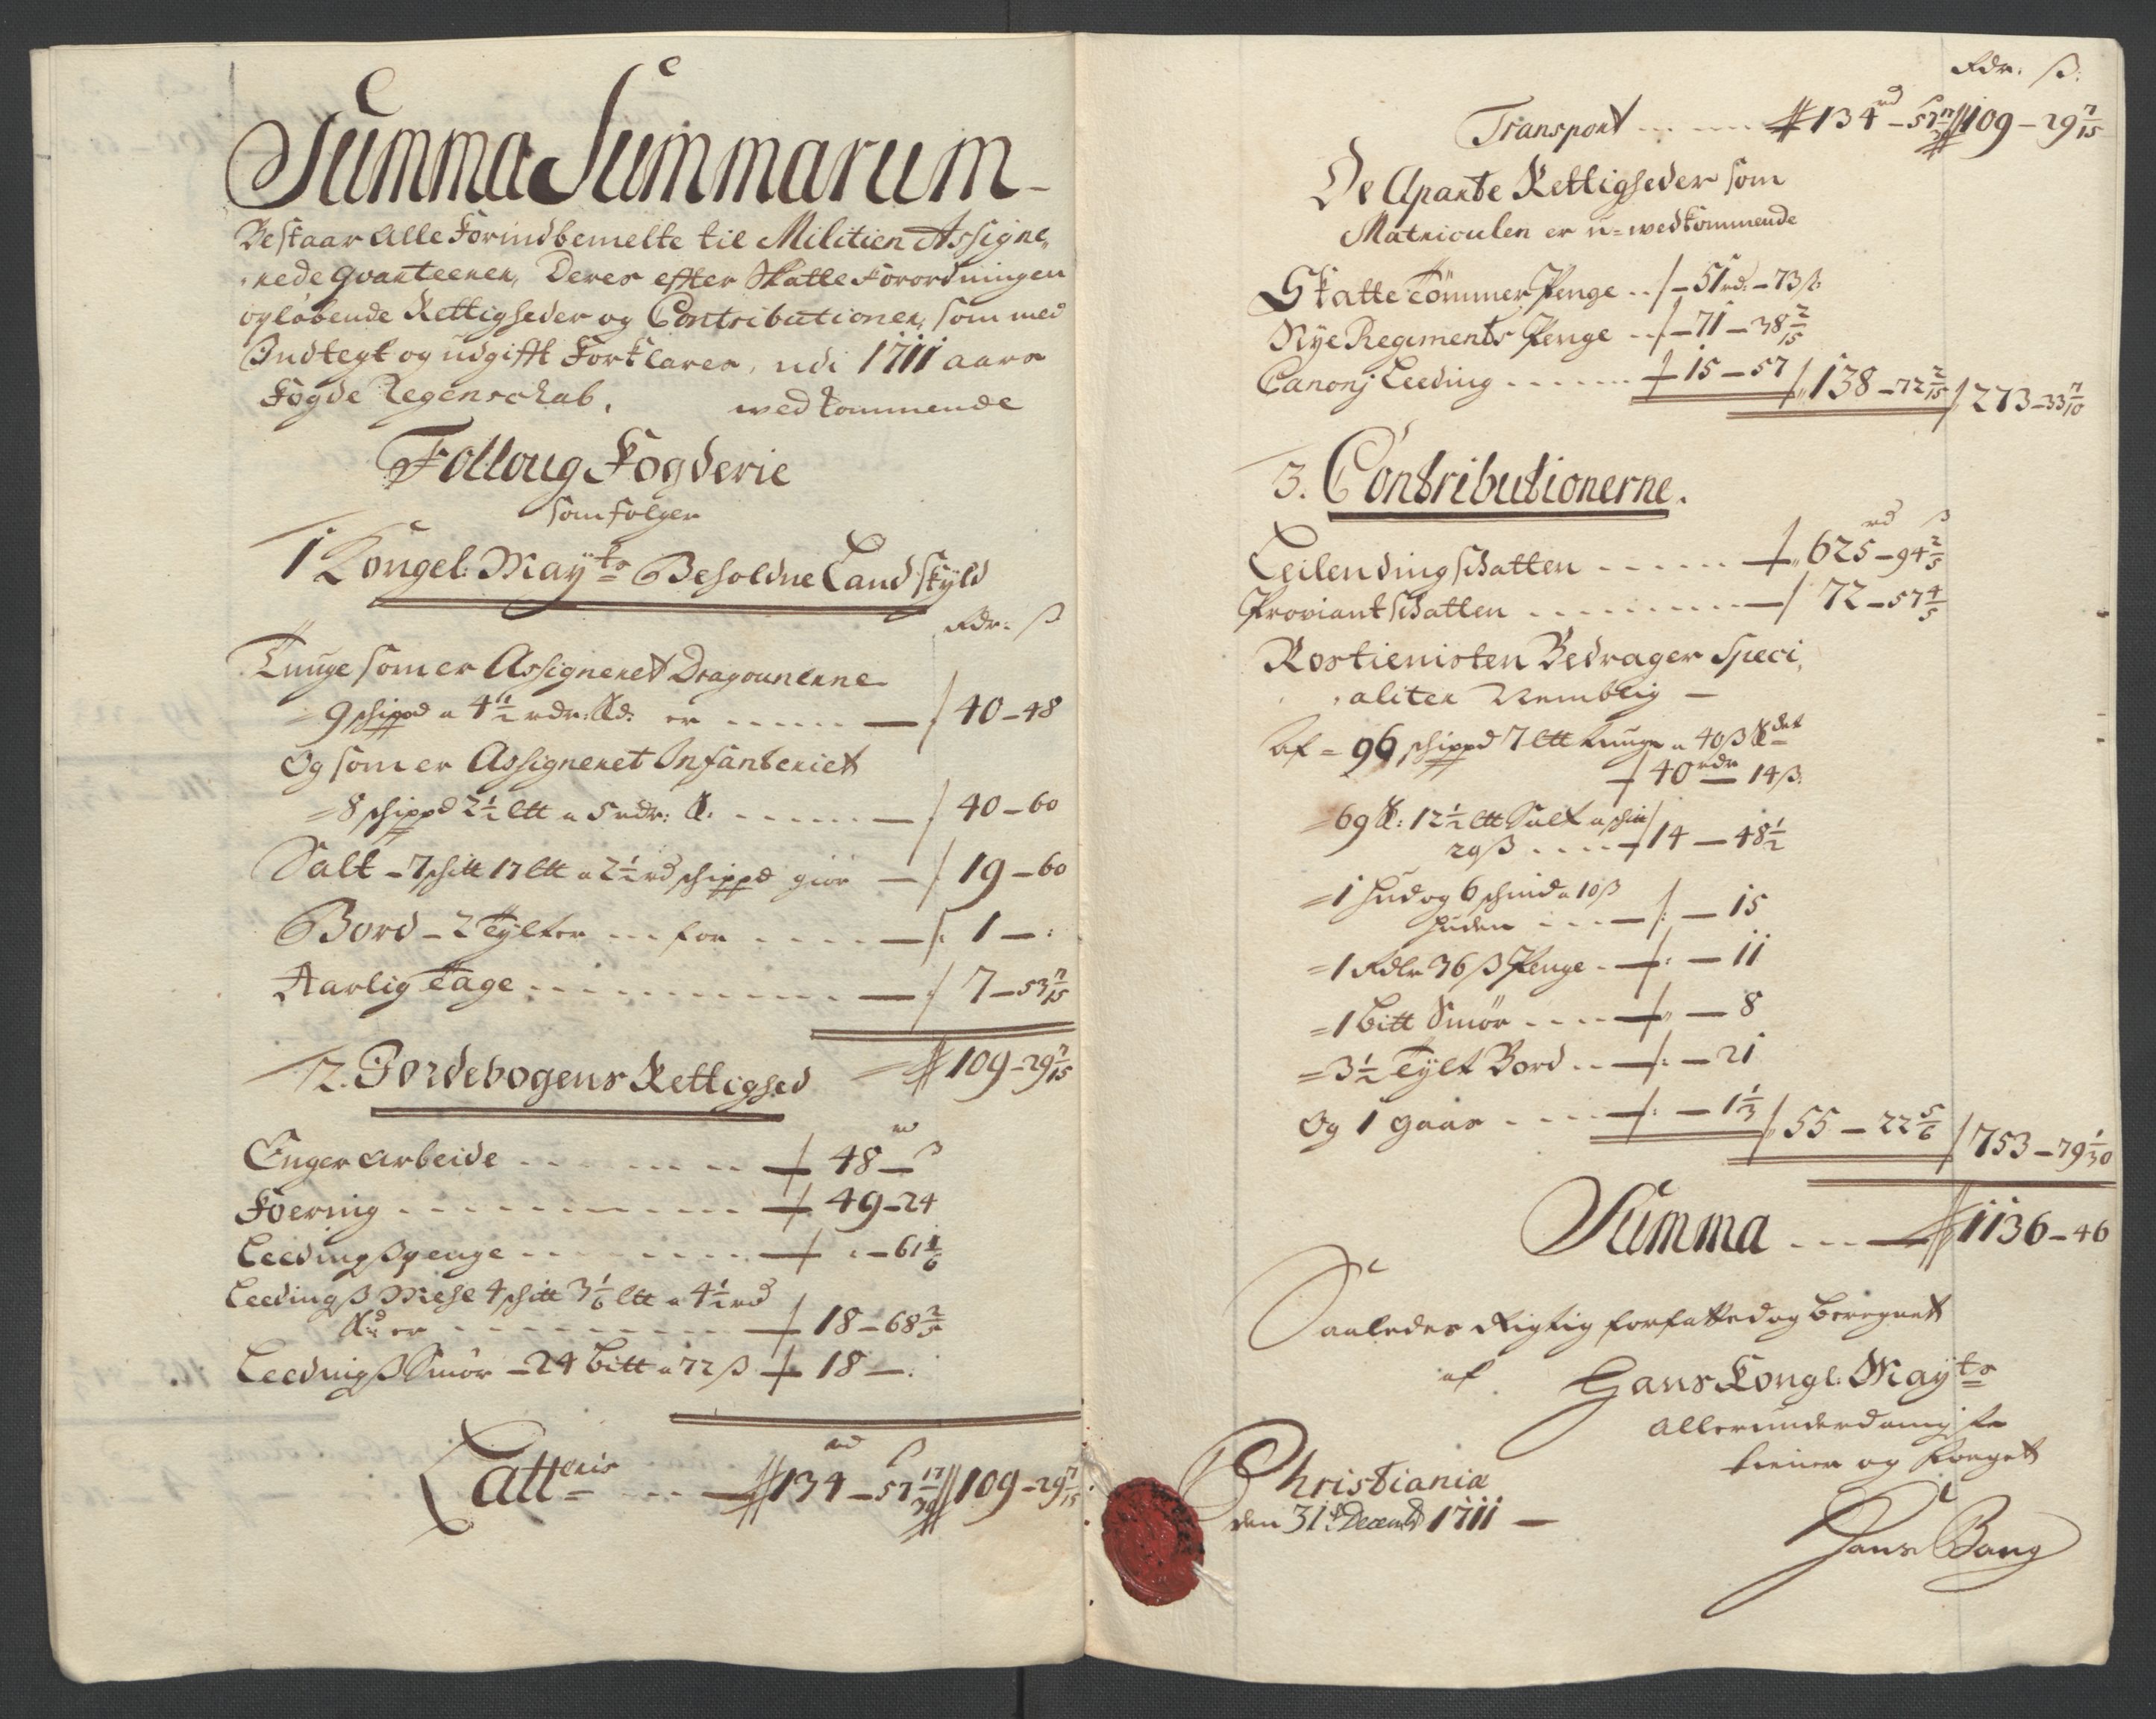 Summa Summarum
Bestaar Alle Forindbemelte til Militien Assigne,
,rede Qvarteerer, Deres efter Skatte Forordningen
og løbende Rettigheder og Contributioner, som med
Indtegt og udgifft Forklares, udi 1711 aars
Fogde Regenschab, vedkommende
Folloug Fogderie
som følger
1 Kongel: May:ts Beholdne Landskÿld
Rdr: ß
Tunge som er Assigneret Dragounerne
9 schippd a 4 1/2 rdr: er ...... 40 - 48
Og som er Assigneret Infanteriet
= 8 schippd 2 1/2 Ltt a 5 rdr: ...... 40 - 60
Salt - 7 schtt 17 Ltt a 2 1/2 rd schippd giør - 19 - 60
Bord - 2 Tÿlter ... for ..... 1 - :
Aarlig Tage .......... 7 - 53 7/15
109 - 29 7/15
2. Jordebogens Rettighed
rd ß
Enger arbeide ....... 48 -
Foering .......... 49 - 24
Leedingßpenge ........ - 61 1/6
Leedingß Mehl 4 schtt 3 1/6 Ltt a 4 1/2 rd
er ........ 18 - 68 2/5
Leedingß Smør - 24 bitt a 72 ß 18 - :
rd ß
Latteris .... 134 - 57 17/30 109 - 29 7/15
Rdr. ß.
Transport ..... 134 rd - 57 17/30 109 - 29 7/15
De Aparte Rettigheder som
Matriculen er u=vedkommende
Skatte Tømmer Penge .. 51 rd: - 73 ß:
Nÿe Regiments Penge .. 71 - 38 2/15
Canonj Leeding ....... 15 - 57 138 - 72 2/15 273 - 33 7/10
3. Contributionerne.
rd ß
Leilending schatten ...... 625 - 94 2/5
Proviant schatten ......... 72 - 57 4/5
Rostienisten Bedrager Speci,
,aliter Nemblig -
Af = 96 schippd 7 Ltt tunge a 40 ß
40 rdr - 14 ß:
= 69 : 12 1/2 Ltt Salt a
20 ß .... 14 - 48 1/2
= 1 Hud og 6 schind a 10 ß
Huden ... - 15
= 1 Rdlr 36 ß Penge . - 11
= 1 bitt Smør .... - 8
= 3 1/2 Tÿlt Bord .. - 21
Og 1 gaas .... - 1 1/3 55 - 22 5/6 753 - 79 1/30
Summa ... 1136 - 46
Saaledes Rigtig forfatted og beregnett
af Hans Kongl: May:ts
allerunderdanigste
tiener og Foeget
Christiania
den 31:t Decemb 1711 -
Hans Bang